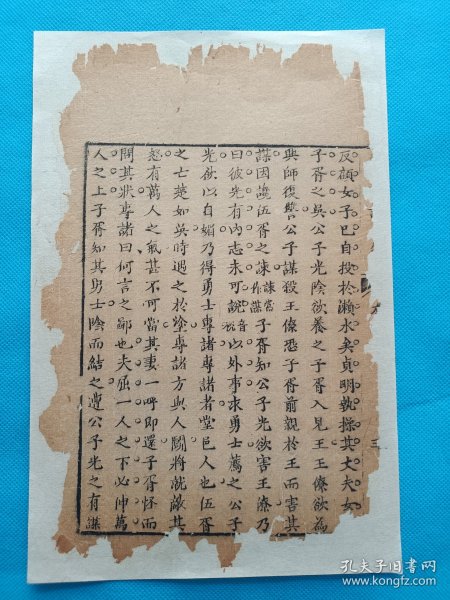 反顧女子已自投於瀨水矣貞明執操其丈夫女
子胥之吳公子光陰欲養之子胥入見王王僚欲為
興師復讐公子謀殺王僚恐子胥前親於王而害其
謀因讒伍胥之諫諫當作謀子胥知公子光欲害王僚乃
曰彼光有內志未可說音稅以外事求勇士薦之公子
光欲以自媚乃得勇士專諸專諸者堂邑人也伍胥
之亡楚如吳時遇之於塗專諸方與人鬪將就敵其
怒有萬人之氣甚不可當其妻一呼即還子胥怪而
問其狀專諸曰何言之鄙也夫屈一人之下必伸萬
人之上子胥知其勇士陰而結之遭公子光之有謀
三
孔夫子旧书网
www.kongfz.com